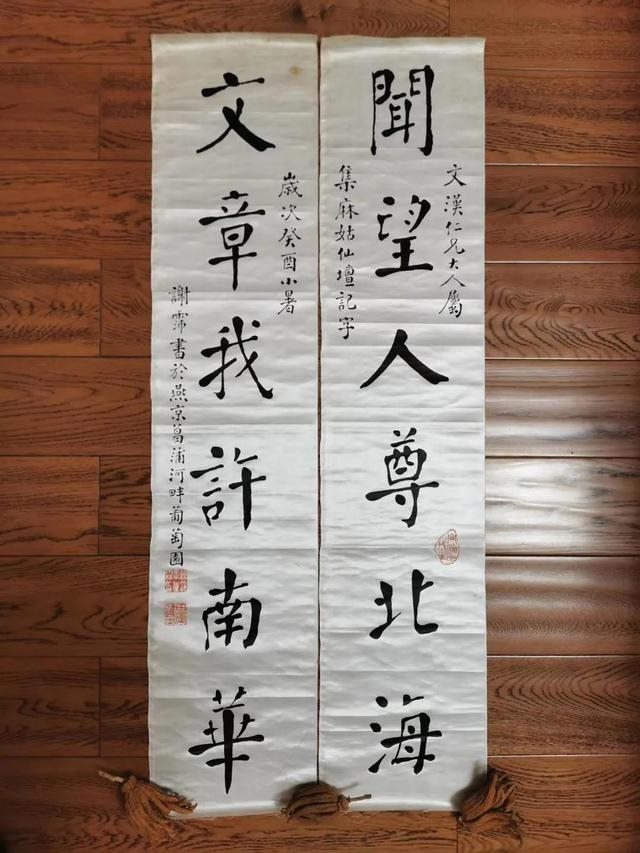 文漢仁兄大人屬
聞望人尊北海
集麻姑仙壇記字
歲次癸酉小暑
文章我許南華
謝書於燕京菖蒲河畔葡萄園